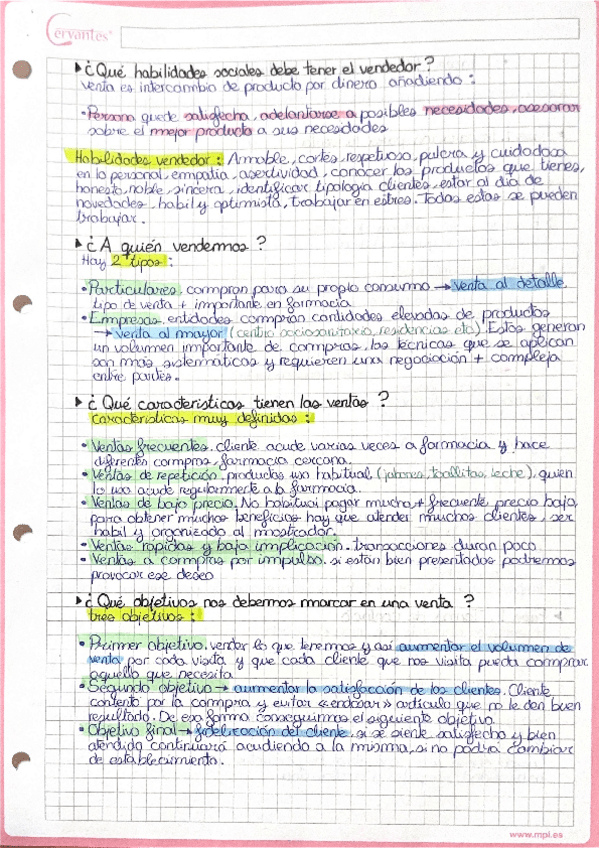 Cervantes
▸¿Qué habilidades sociales debe tener el vendedor?
Venta es intercambio de producto por dinero añadiendo:
• Persona quede satisfecha, adelantarse a posibles necesidades, asesorar
sobre el mejor producto a sus necesidades
Habilidades vendedor: Amable, cortes, respetuoso, pulcra y cuidadosa
en lo personal, empatia, asertividad, conocer los productos que tienes,
honesto, noble, sincera, identificar tipologia clientes, estar al dia de
novedades, habil y optimista, trabajar en estres. Todas estas se pueden
trabajar.
▸¿A quién vendemos?
Hay 2 tipos:
• Particulares, compran para su propio consumo → venta al detalle,
tipo de venta + importante en farmacia
• Empresas, entidades compran cantidades elevadas de productos
→ venta al mayor (centro sociosanitario, residencias etc). Estas generan
un volumen importante de compras, las técnicas que se aplican
son más sistemáticas y requieren una negociación + compleja
entre partes.
▸¿Qué características tienen las ventas?
Características muy definidas:
• Ventas frecuentes. cliente acude varias veces a farmacia y hace
diferentes compras, farmacia cercana.
• Ventas de repetición. productos uso habitual (jabones, toallitas, leche), quien
lo usa acude regularmente a la farmacia.
• Ventas de bajo precio. No habitual pagar mucho, + frecuente precio bajo,
para obtener muchos beneficios hay que atender muchos clientes, ser
habil y organizado al mostrador.
• Ventas rapidas y baja implicación. transacciones duran poco
• Ventas a compras por impulso. si están bien presentados podremos
provocar ese deseo
▸¿Qué objetivos nos debemos marcar en una venta?
tres objetivos:
• Primer objetivo. vender lo que tenemos y así aumentar el volumen de
venta por cada visita y que cada cliente que nos visita pueda comprar
aquello que necesita.
• Segundo objetivo → aumentar la satisfacción de los clientes. Cliente
contento por la compra y evitar «endosar» articulo que no le den buen
resultado. De esa forma conseguimos el siguiente objetivo.
• Objetivo final → fidelización del cliente, si se siente satisfecho y bien
atendido continuará acudiendo a la misma, si no podrá cambiar
de establecimiento.
www.mpl.es